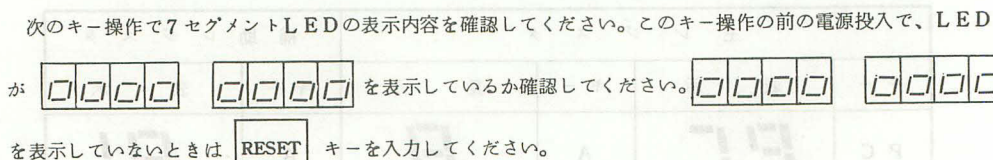 次のキー操作で7セグメントLEDの表示内容を確認してください。このキー操作の前の電源投入で、LED
が 0000 0000 を表示しているか確認してください。 0000 0000
を表示していないときは RESET キーを入力してください。